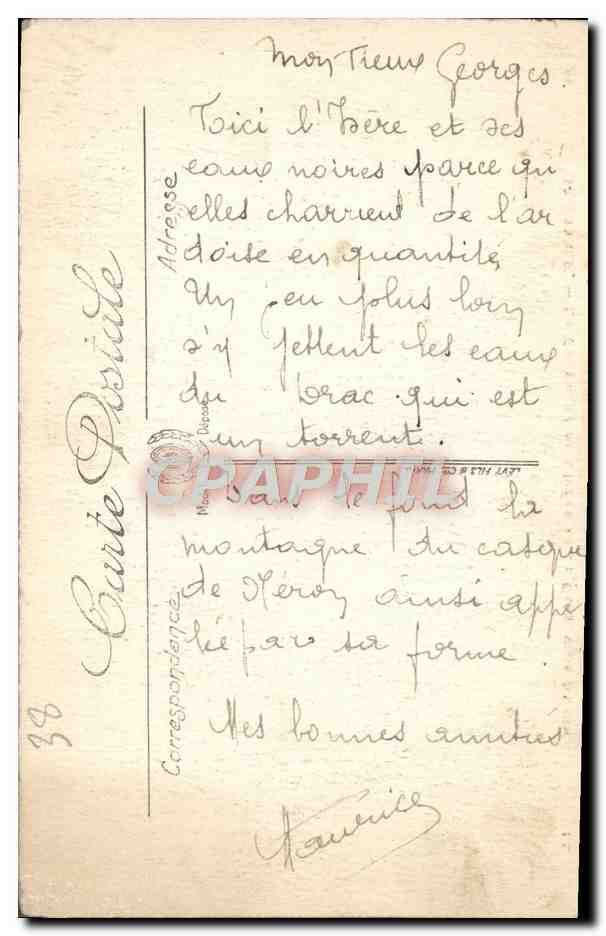 Mon Vieux Georges.
Voici l'Isère et ses
eaux noires parce qu'
elles charrient de l'ar
doise en quantité,
Un peu plus loin
s'y jettent les eaux
du Drac qui est
un torrent.
Dans le fond la
montagne du casque
de Néron ainsi appe
lée par sa forme.
Mes bonnes amitiés
Maurice
Carte Postale
Adresse
Correspondance
Déposé
LEVY FILS & Cie
CPAPHIL
38